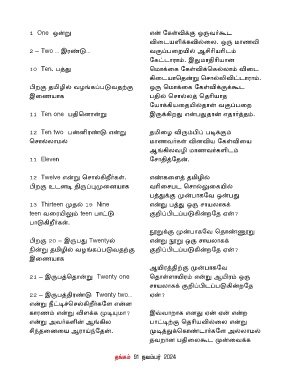 1 One ஒன்று
2 – Two .. இரண்டு..
10 Ten, பத்து
பிறகு தமிழில் வழங்கப்படுவதற்கு
இணையாக
11 Ten one பதினொன்று
12 Ten two பன்னிரண்டு என்று
சொல்லாமல்
11 Eleven
12 Twelve என்று சொல்கிறீர்கள்.
பிறகு உடனடி திருப்புமுனையாக
13 Thirteen முதல் 19 Nine
teen வரையிலும் teen பாட்டு
பாடுகிறீர்கள்.
பிறகு 20 – இருபது Twentyல்
நின்று தமிழில் வழங்கப்படுவதற்கு
இணையாக
21 – இருபத்தொன்று Twenty one
22 – இருபத்திரண்டு Twenty two...
என்று நீட்டிச்செல்கிறீர்களே என்ன
காரணம் என்று விளக்க முடியுமா?
என்று அவர்களின் ஆங்கில
சிந்தனையை ஆராய்ந்தேன்.
என் கேள்விக்கு ஒருவர்கூட
விடையளிக்கவில்லை. ஒரு மாணவி
வகுப்பறையில் ஆசிரியரிடம்
கேட்டாராம். இதுமாதிரியான
மொக்கை கேள்விகளெல்லாம் விடை
கிடையாதென்று சொல்லிவிட்டாராம்.
ஒரு மொக்கை கேள்விக்குக்கூட
பதில் சொல்லத் தெரியாத
யோக்கியதையில்தான் வகுப்பறை
இருக்கிறது என்பதுதான் எதார்த்தம்.
தமிழை விரும்பிப் படிக்கும்
மாணவர்கள் வினவிய கேள்வியை
ஆங்கிலவழி மாணவர்களிடம்
சோதித்தேன்.
எண்களைத் தமிழில்
வரிசைபட சொல்லுகையில்
பத்துக்கு முன்பாகவே ஒன்பது
என்று பத்து ஒரு சாயலாகக்
குறிப்பிடப்படுகின்றதே ஏன்?
நூறுக்கு முன்பாகவே தொண்ணூறு
என்று நூறு ஒரு சாயலாகக்
குறிப்பிடப்படுகின்றதே ஏன்?
ஆயிரத்திற்கு முன்பாகவே
தொள்ளாயிரம் என்று ஆயிரம் ஒரு
சாயலாகக் குறிப்பிடப்படுகின்றதே
ஏன்?
இவ்வாறாக எனது ஏன் ஏன் என்ற
பாட்டிற்கு தெரியவில்லை என்று
முடித்துக்கொண்டார்களே அல்லாமல்
தவறான பதிலைகூட முன்வைக்க
தங்கம் 91 நவம்பர் 2024